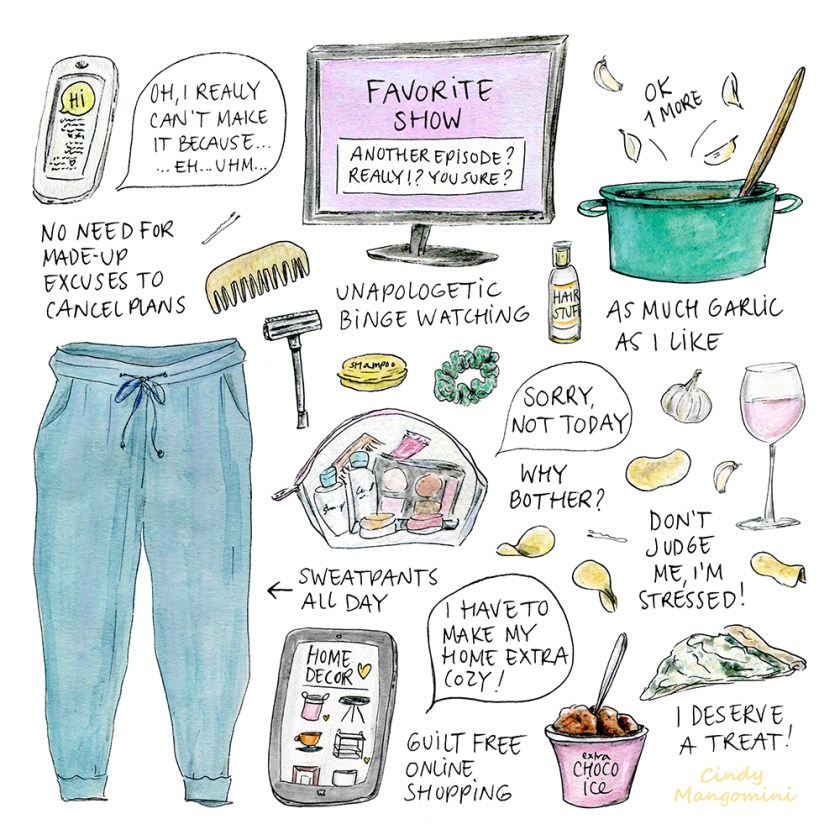 Hi
OH, I REALLY
CAN'T MAKE
IT BECAUSE...
...EH...UHM...
NO NEED FOR
MADE-UP
EXCUSES TO
CANCEL PLANS
FAVORITE
SHOW
ANOTHER EPISODE?
REALLY!? YOU SURE?
UNAPOLOGETIC
BINGE WATCHING
OK
1 MORE
AS MUCH GARLIC
AS I LIKE
HAIR
STUFF
SHAMPOO
SORRY,
NOT TODAY
WHY
BOTHER?
DON'T
JUDGE
ME, I'M
STRESSED!
← SWEATPANTS
ALL DAY
HOME
DECOR
I HAVE TO
MAKE MY
HOME EXTRA
COZY!
GUILT FREE
ONLINE
SHOPPING
extra
CHOCO
ICE
I DESERVE
A TREAT!
Cindy
Mangomini